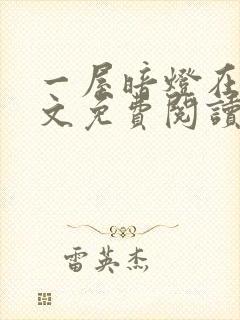 一屋暗燈在
文免費閱讀
雷英杰